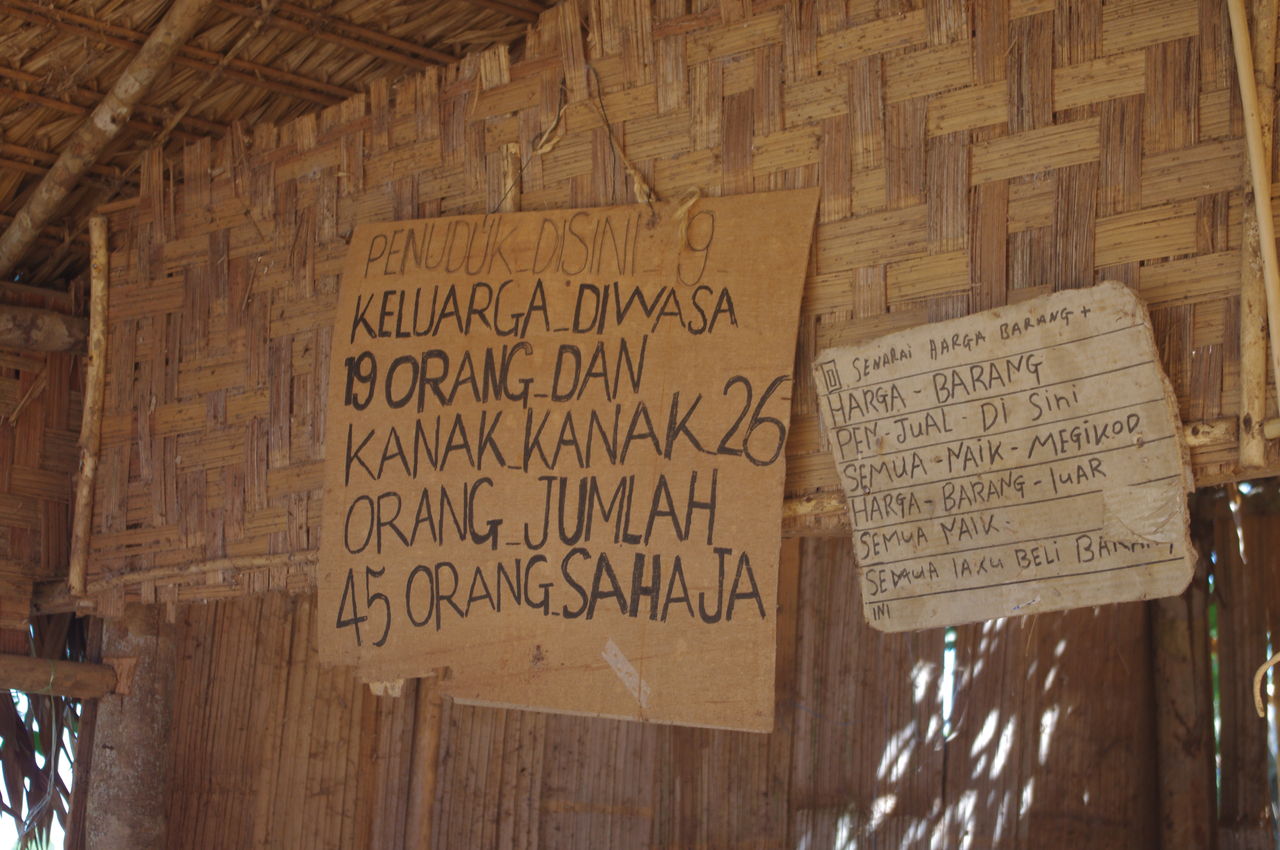 PENUDUK_DISINI_9_
KELUARGA_DIWASA
19 ORANG_DAN
KANAK_KANAK 26
ORANG_JUMLAH
45 ORANG_SAHAJA
SENARAI HARGA BARANG +
HARGA - BARANG
PEN-JUAL - Di Sini
SEMUA - NAIK - MEGIKOD
HARGA - BARANG - luAR
SEMUA NAIK -
BELI
INI